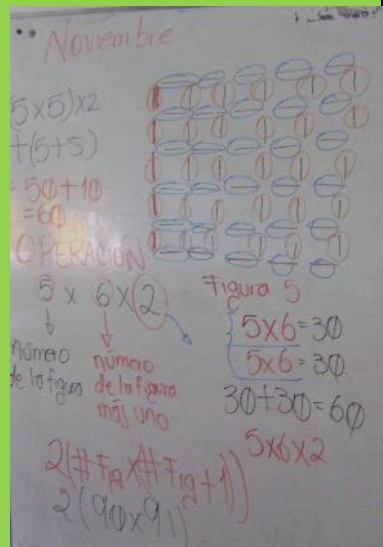 Noviembre
(5x5)x2
+(5+5)
=50+10
=60
OPERACIÓN
5 x 6 x 2
número
de la figura
número
de la figura
más uno
Figura 5
5x6=30
5x6=30
30+30=60
5x6x2
2(#Fig x(#Fig+1))
2(90x91)